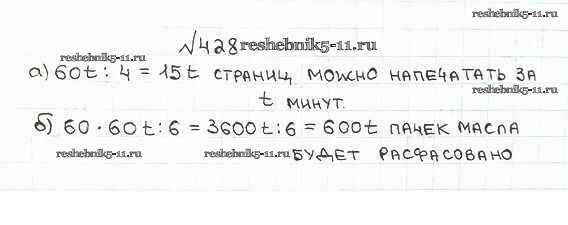 reshebnik5-11.ru
√428 reshebnik5-11.ru
reshebnik5-11.ru
а) 60t : 4 = 15t страниц можно напечатать за
reshebnik5-11.ru
t минут.
б) 60 · 60t : 6 = 3600t : 6 = 600t пачек масла
reshebnik5-11.ru reshebnik5-11.ru будет расфасовано